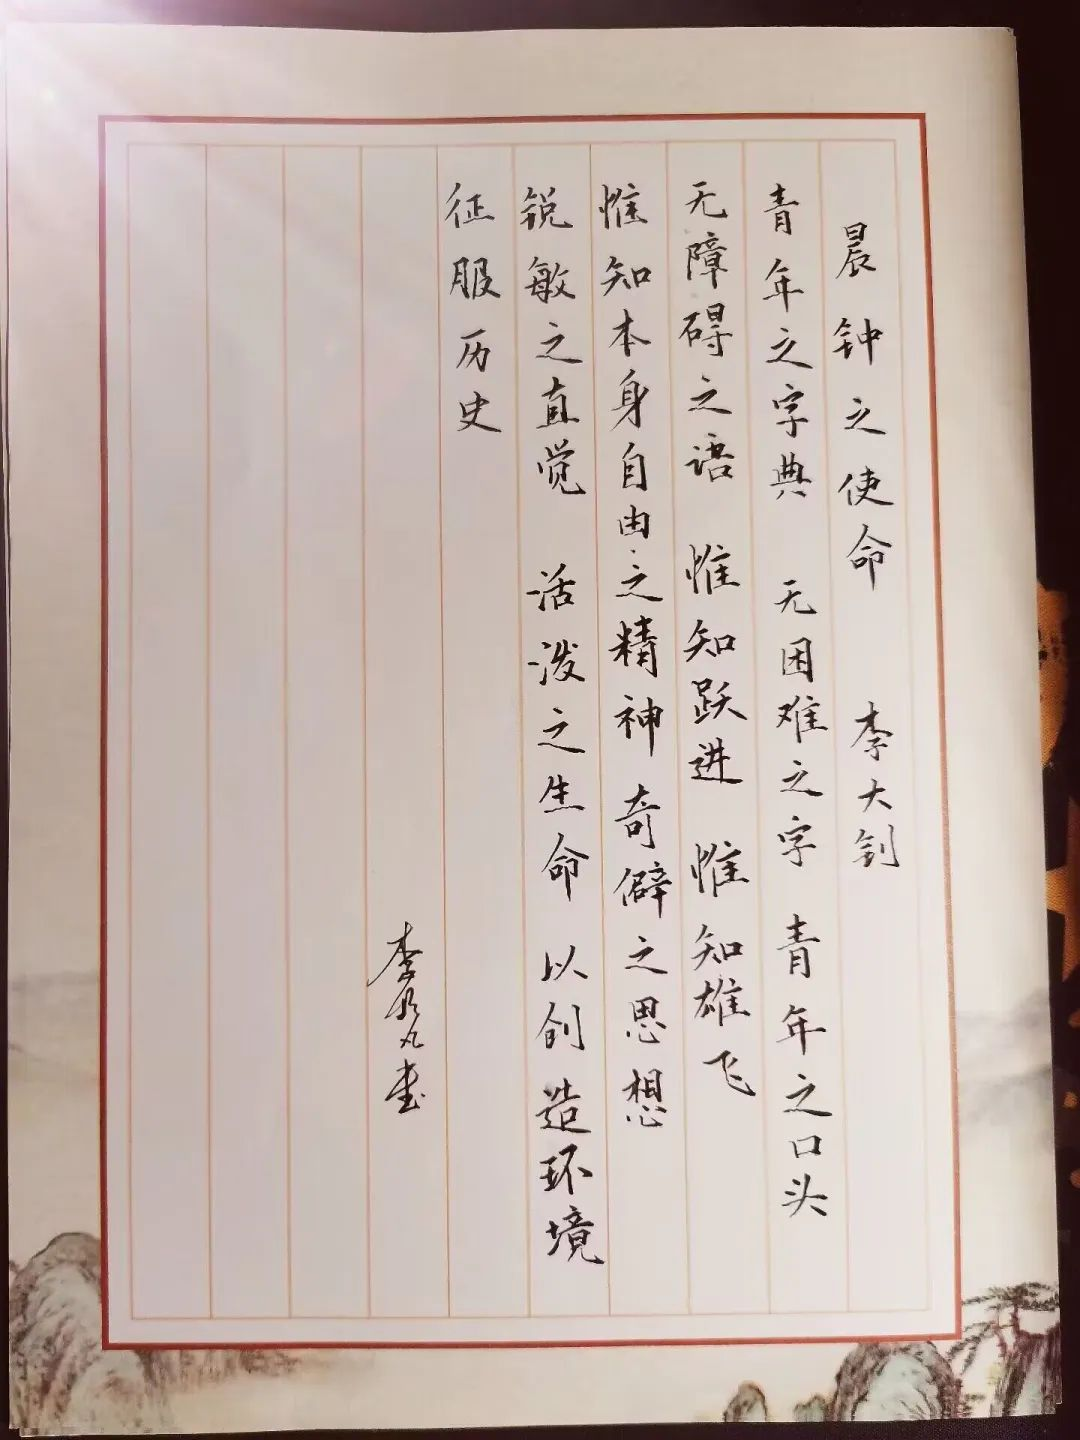 晨钟之使命 李大钊
青年之字典 无困难之字 青年之口头
无障碍之语 惟知跃进 惟知雄飞
惟知本身自由之精神 奇僻之思想
锐敏之直觉 活泼之生命 以创造环境
征服历史
李 书